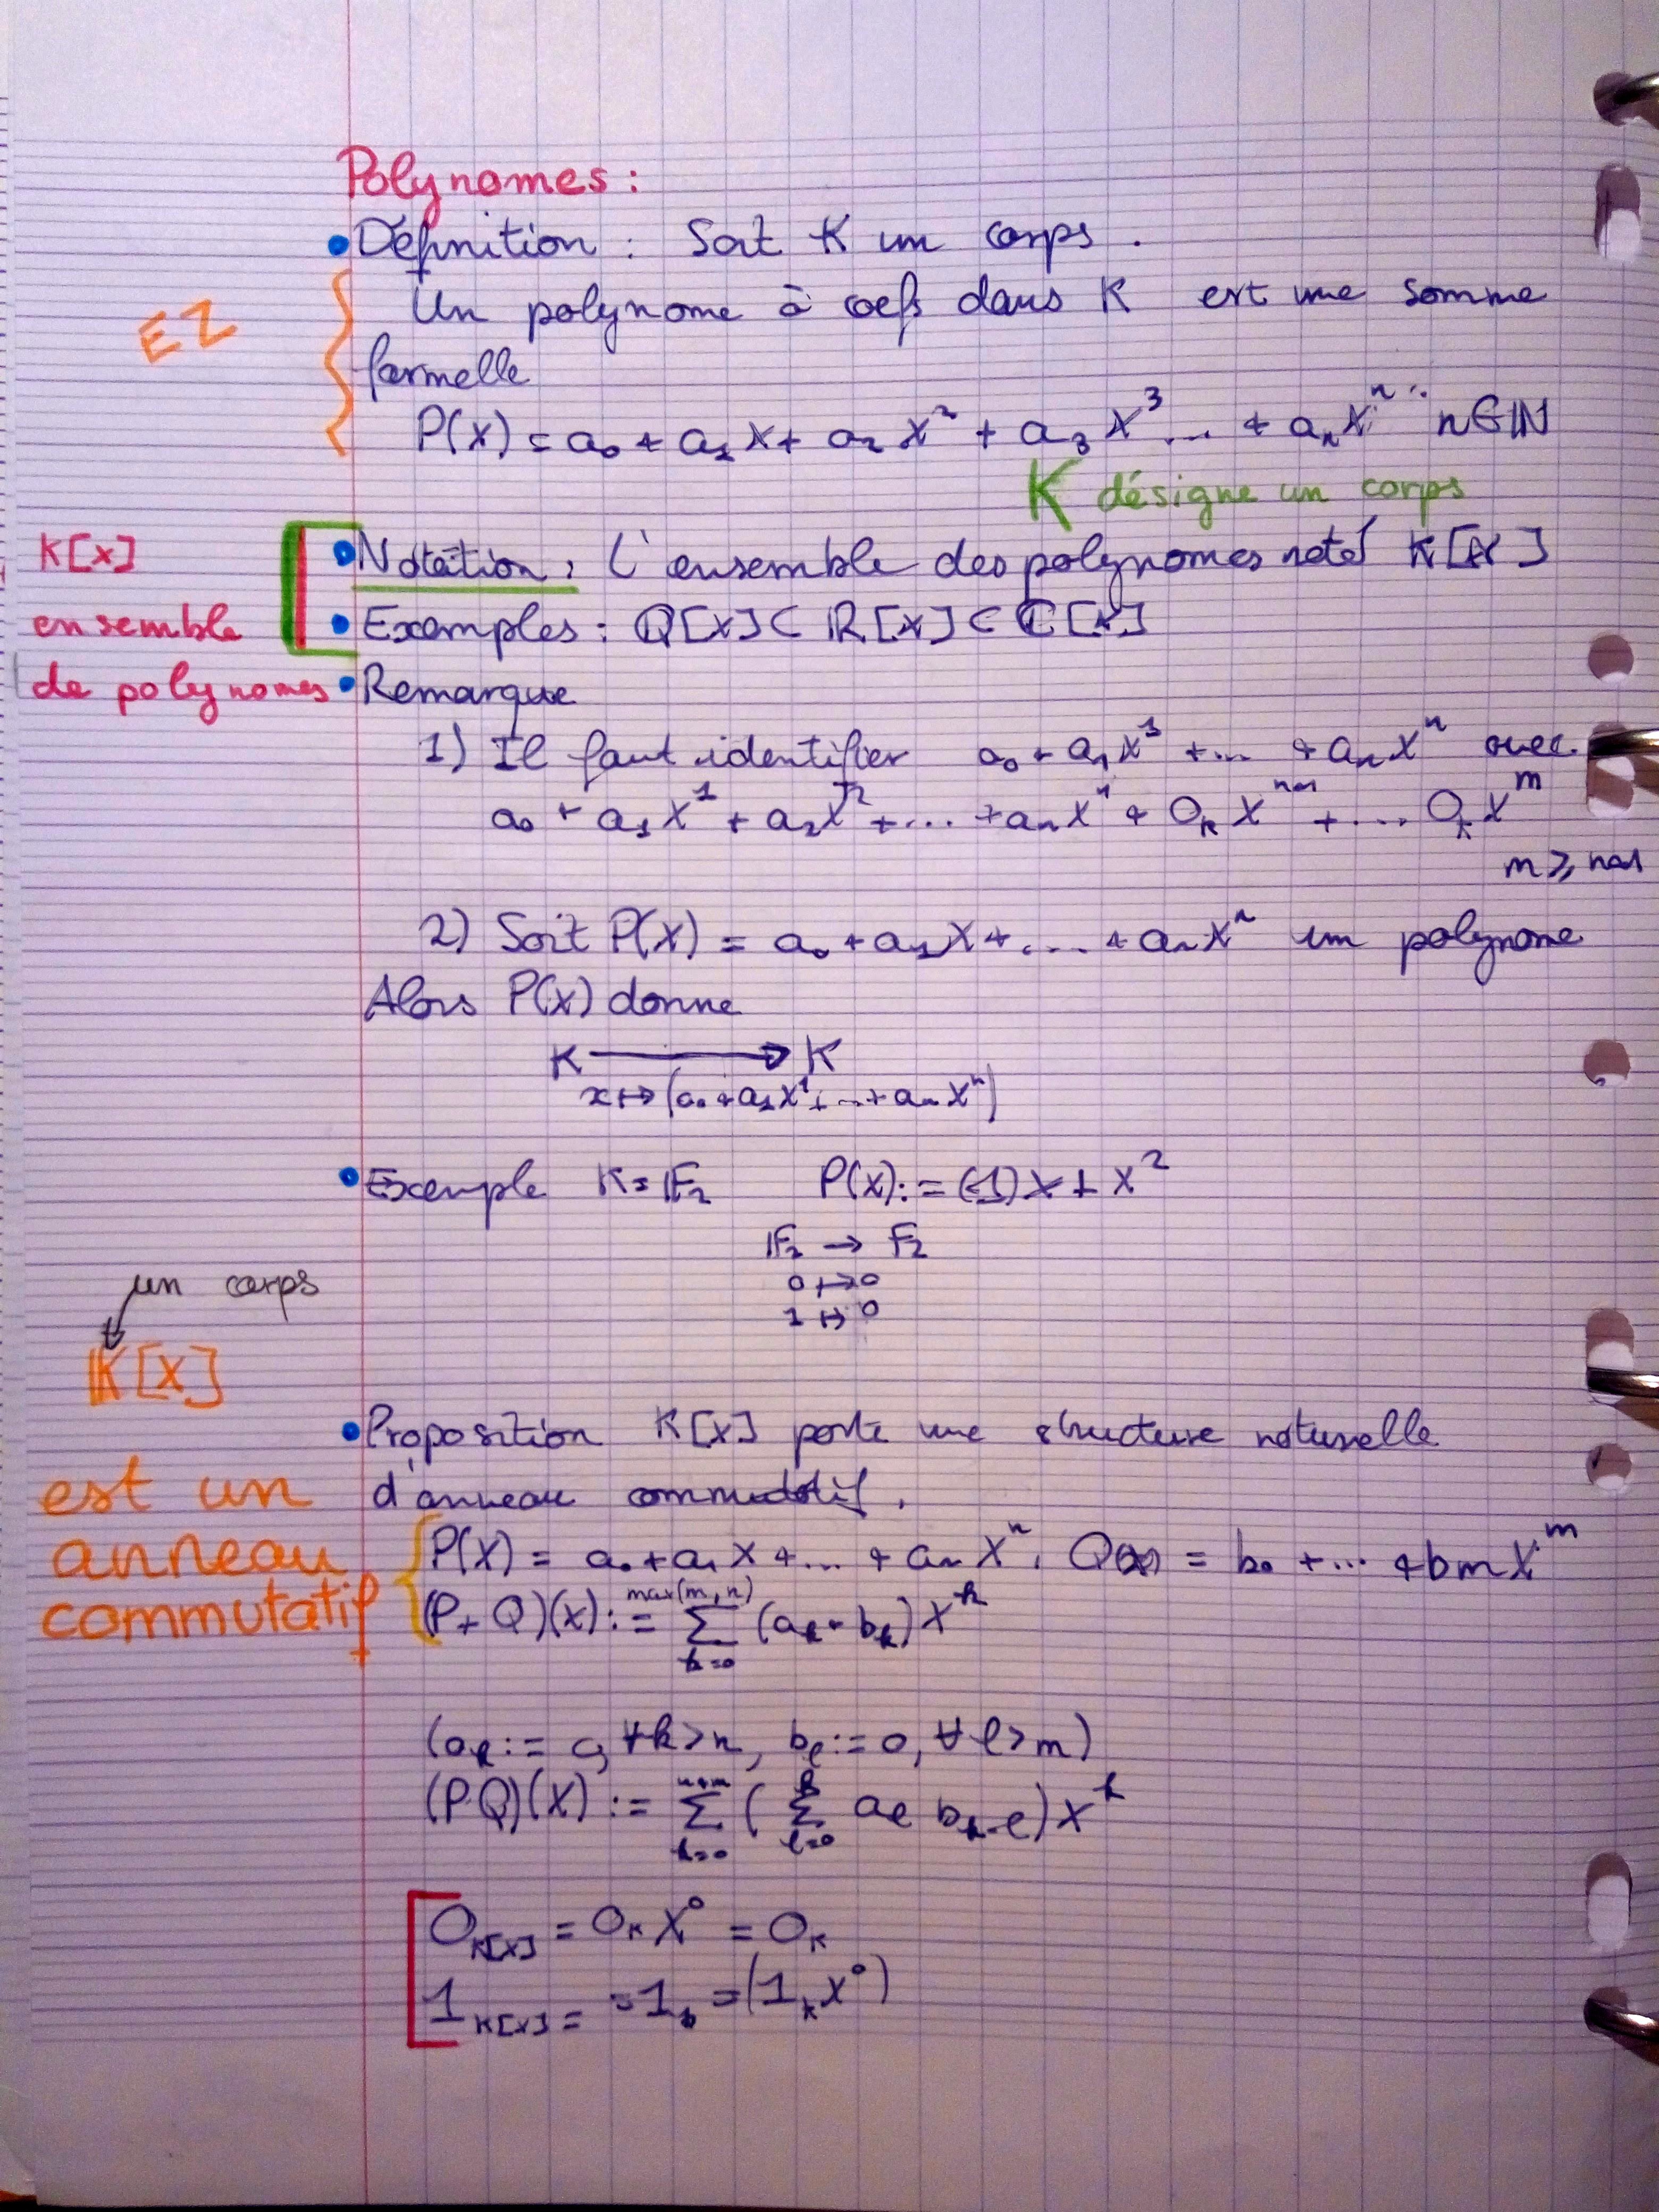 Polynomes :
• Définition : Soit K un corps .
EZ
Un polynome à coefs dans K est une somme
formelle
P(X) = a₀ + a₁X + a₂X² + a₃X³ ... + aₙXⁿ n∈ℕ
K désigne un corps
K[X]
ensemble
de polynomes
• Notation : L'ensemble des polynomes noté K[X]
• Exemples : ℚ[X] ⊂ ℝ[X] ⊂ ℂ[X]
• Remarque
1) Il faut identifier a₀ + a₁X¹ + ... + aₙXⁿ avec
a₀ + a₁X¹ + a₂X² + ... + aₙXⁿ + 0ₖXⁿ⁺¹ + ... 0ₖXᵐ
m ≥ n+1
2) Soit P(X) = a₀ + a₁X + ... + aₙXⁿ un polynome
Alors P(X) donne
K ⟶ K
x ↦ (a₀ + a₁X¹ + ... + aₙXⁿ)
• Exemple K = 𝔽₂ P(X) := (-1)X + X²
𝔽₂ → F₂
0 ↦ 0
1 ↦ 0
un corps
𝕂[X]
est un
anneau
commutatif
• Proposition K[X] porte une structure naturelle
d'anneau commutatif .
P(X) = a₀ + a₁X + ... + aₙXⁿ, Q(X) = b₀ + ... + bmXᵐ
(P+Q)(X) := ∑_{k=0}^{max(m,n)} (aₖ + bₖ)X^k
(aₖ := 0, ∀k>n, b_ℓ := 0, ∀ℓ>m)
(PQ)(X) := ∑_{k=0}^{n+m} ( ∑_{ℓ=0}^{k} a_ℓ b_{k-ℓ}) X^k
0_{K[X]} = 0ₖX⁰ = 0ₖ
1_{K[X]} = = 1ₖ = (1ₖX⁰)